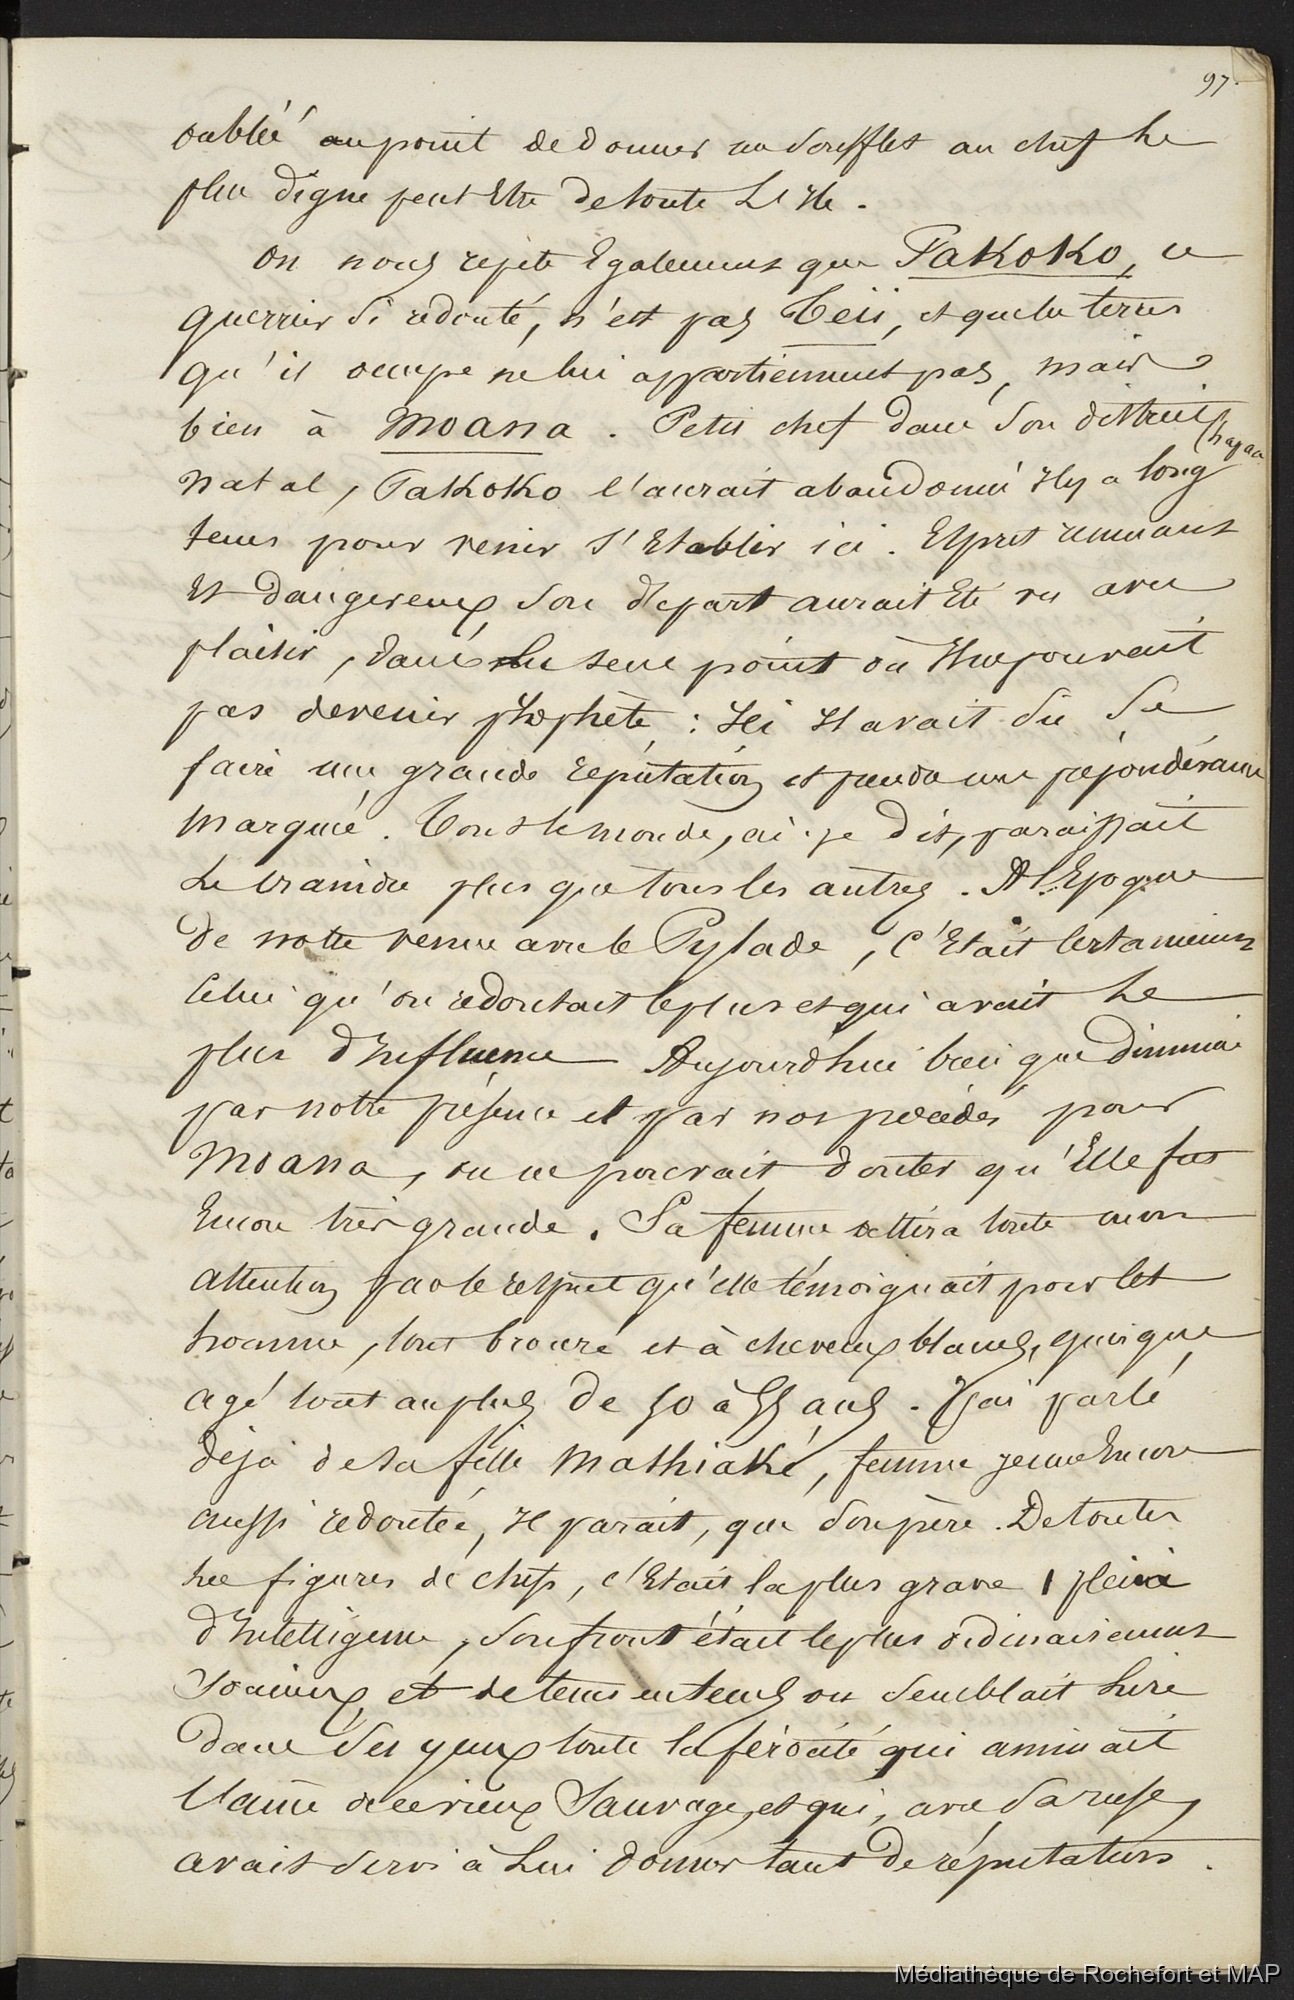 97.
oublié au point de donner un soufflet au chef le
plus digne peut être de toute l'ile.
On nous repete Egalement que Takoko, ce
guerrier si redouté, n'est pas Teii, et que les terres
qu'il occupe ne lui appartiennent pas, mais
bien à Moana. Petit chef dans son district
(hapaa
natal, Takoko l'aurait abandonné il y a long
tems pour venir s'Etablir ici. Esprit remuant
Et dangereux, son départ aurait Eté vu avec
plaisir, dans le seul point où il ne pouvait
pas devenir prophète : Ici il avait su se
faire une grande reputation et prendre une prépondérance
marquée. Tout le monde, ai-je dit, paraissait
le craindre plus que tous les autres. A l'Epoque
de notre venue avec le Pylade, c'Etait certainement
celui qu'on redoutait le plus et qui avait le
plus d'influence Aujourd'hui bien que diminuée
par notre présence et par nos procédés pour
Moana, on ne pouvait douter qu'Elle fut
Encore très grande. Sa femme attira toute mon
attention par le respect qu'elle témoignait pour cet
homme, tout bronzé et à cheveux blancs, quoique
agé tout au plus de 50 à 55 ans. J'ai parlé
déjà de sa fille Mathiaké, femme jeune Encore
aussi redoutée, il parait, que son père. De toutes
les figures de chefs, c'Etait la plus grave, pleine
d'intelligence, son front était le plus ordinairement
soucieux, et de tems en tems on semblait lire
dans ses yeux toute la férocité qui animait
l'ame de ce vieux Sauvage, et qui, avec sa ruse,
avait servi à lui donner tant de réputation.
Médiathèque de Rochefort et MAP